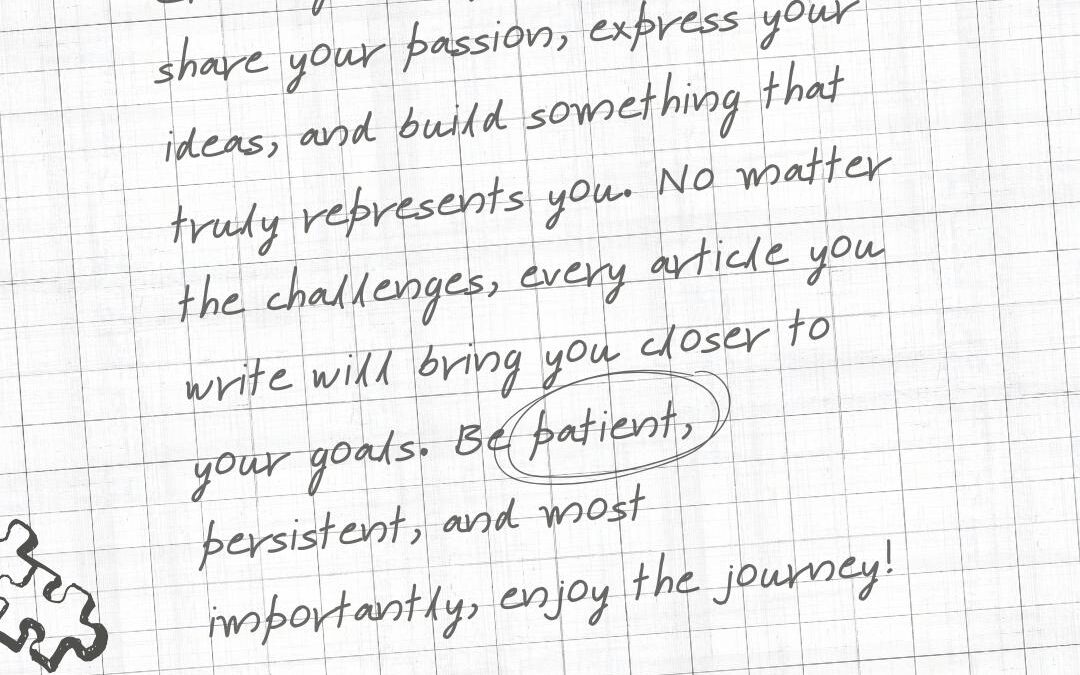 share your passion, express your
ideas, and build something that
truly represents you. No matter
the challenges, every article you
write will bring you closer to
your goals. Be patient,
persistent, and most
importantly, enjoy the journey!